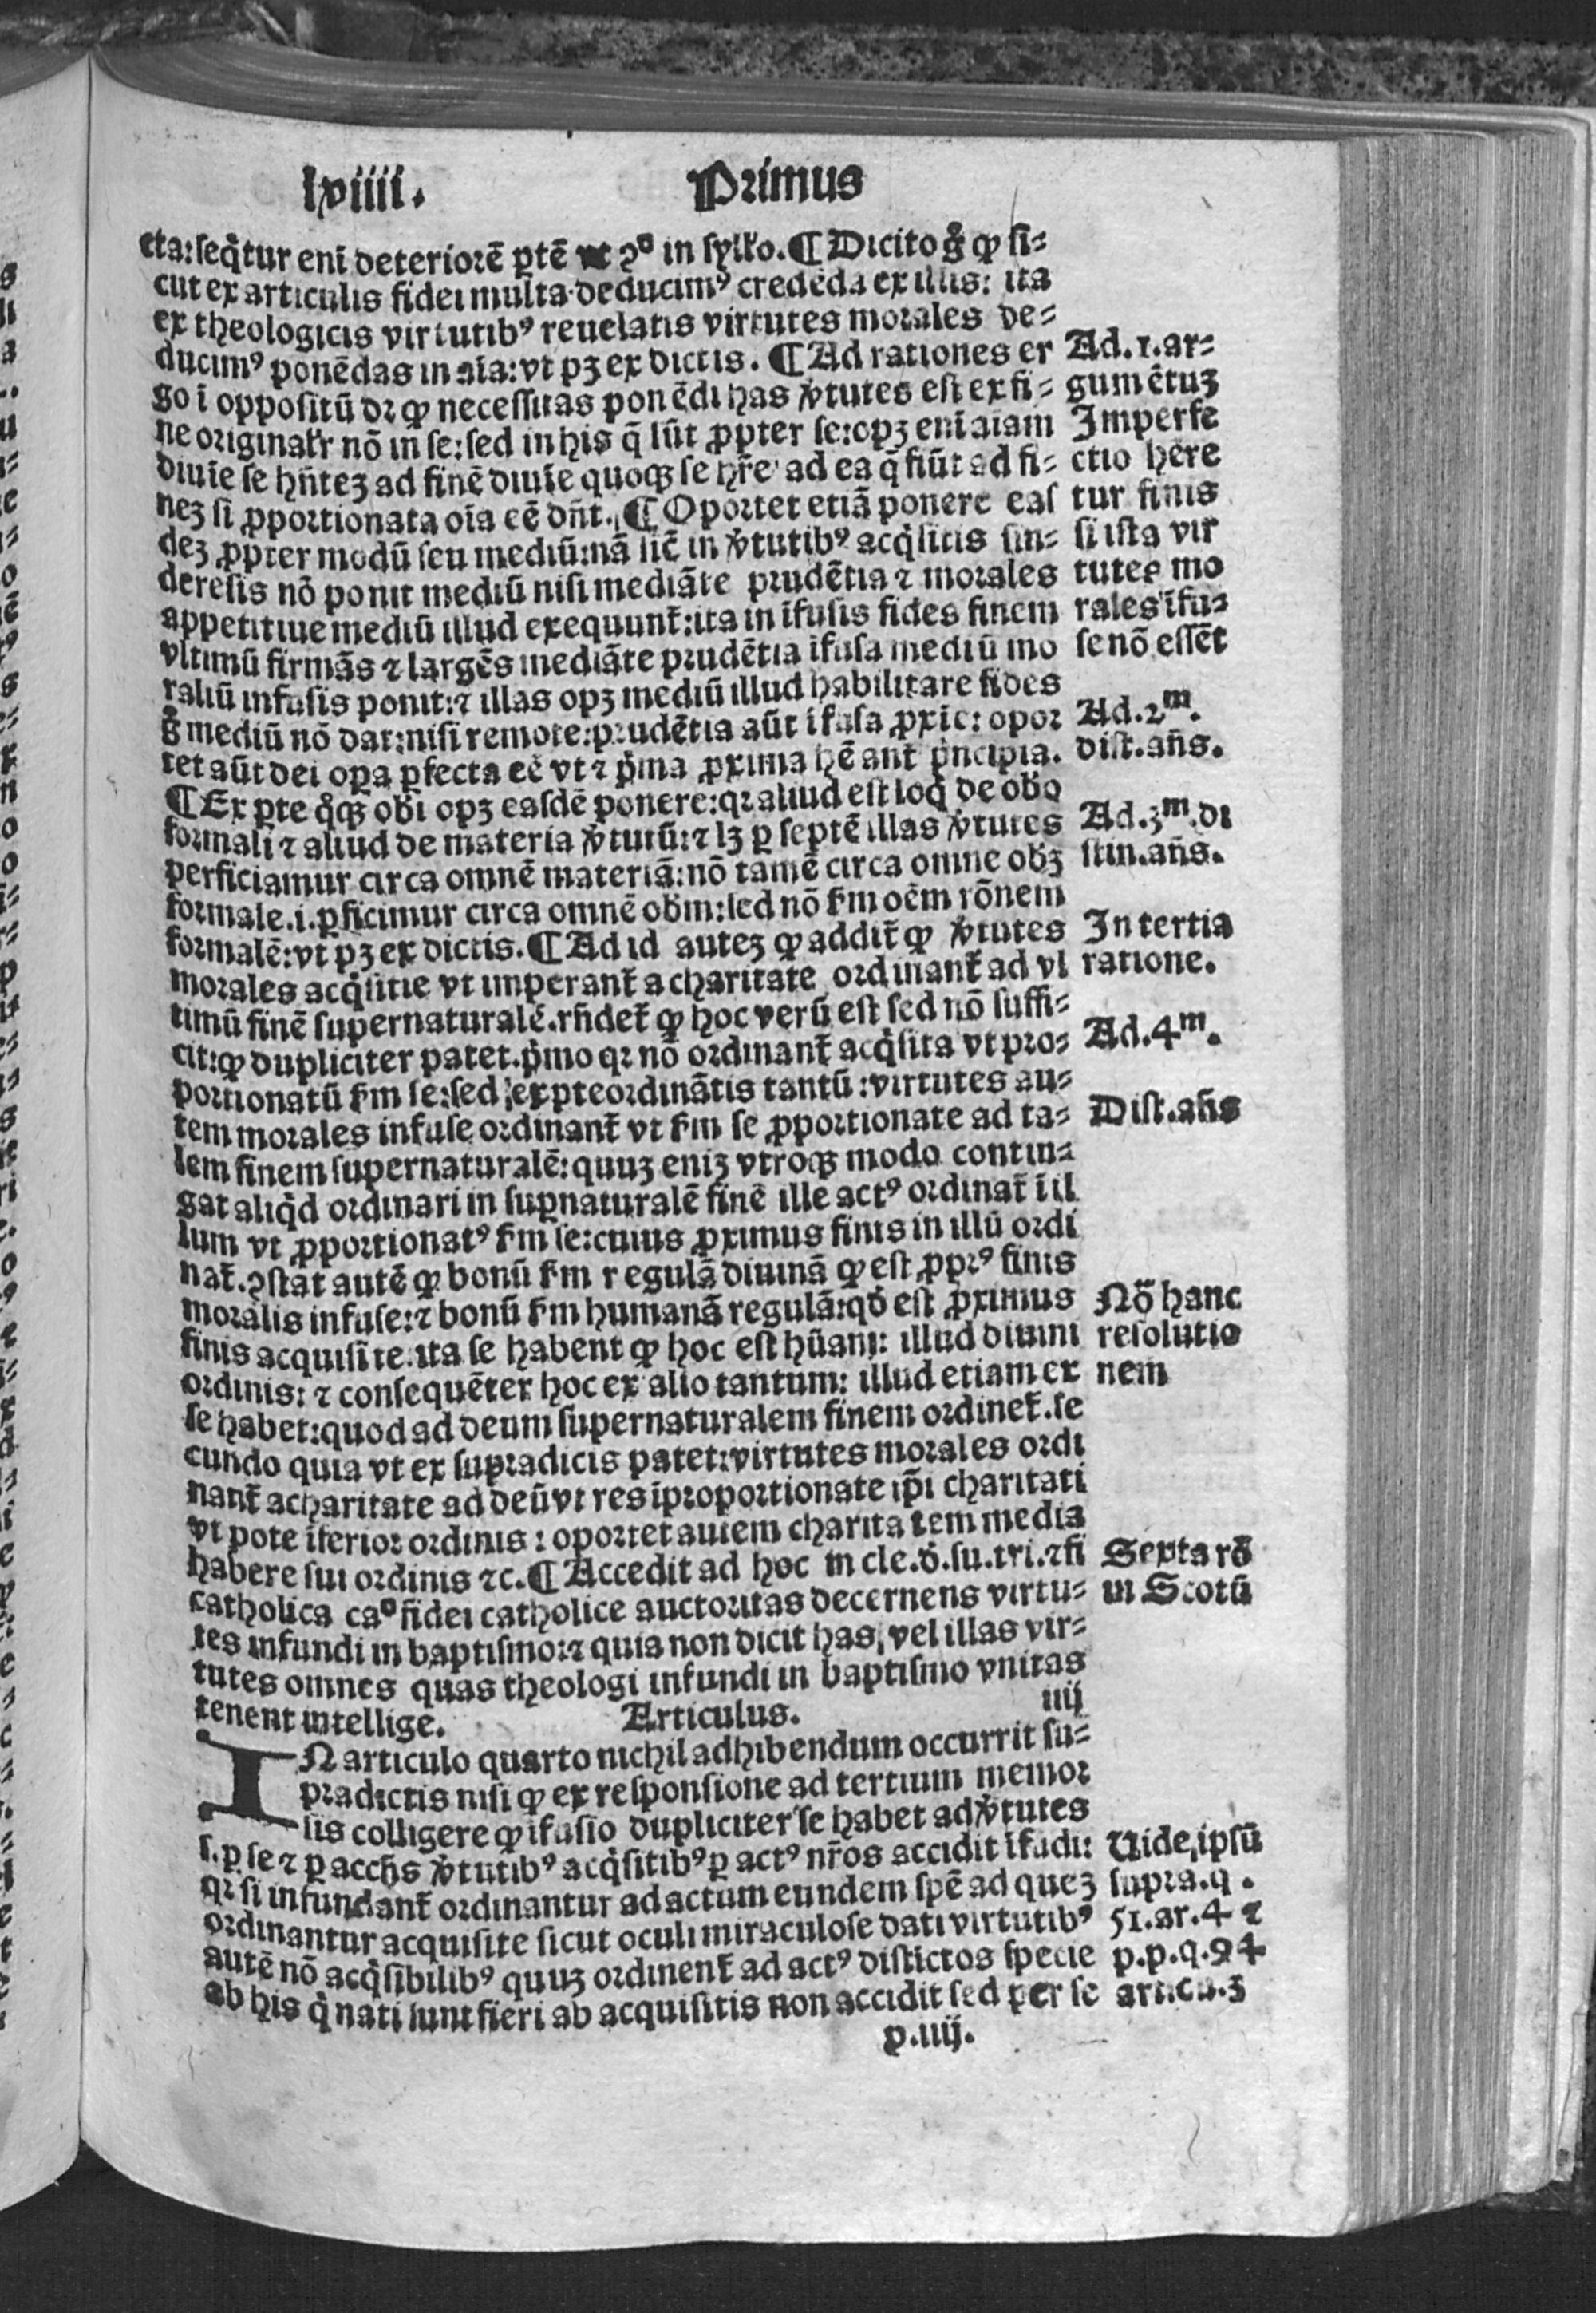 lviiii. Primus
cta:seq̃tur eni deteriorē ꝑtē vt ꝯº in syllo.¶Dicito g̊ ꝙ si⸗
cut ex articulis fidei multa deducimꝰ credēda ex illis: ita
ex theologicis virtutibꝰ reuelatis virtutes morales de⸗
ducimꝰ ponēdas in aīa:vt pꝫ ex dictis. ¶Ad rationes er
go i oppositū dꝛ ꝙ necessitas ponēdi has v̾tutes est ex fi⸗
ne originalr nō in se:sed in his q̄ sūt ꝓpter se:opꝫ eni aīam
diuīe se hñteꝫ ad finē diuīe quoqꝫ se hr̄e ad ea q̄ fiūt ad fi⸗
neꝫ si ꝓportionata oīa eē dñt.¶Oportet etiā ponere eas
deꝫ ꝓpter modū seu mediū:nā sic̄ in v̾tutibꝰ acq̇sitis sin⸗
deresis nō ponit mediū nisi mediāte prudētia ⁊ morales
appetitiue mediū illud exequunt̄:ita in īfusis fides finem
vltimū firmās ⁊ largēs mediāte prudētia īfusa mediū mo
raliū infusis ponit:⁊ illas opꝫ mediū illud habilitare fides
g̊ mediū nō dat:nisi remote:prudētia aūt īfusa ꝓxie: opor
tet aūt dei oꝑa ꝑfecta eē vt ⁊ p̄ma ꝓxima hēant p̄ncipia.
¶Ex ꝑte q̊qꝫ obi opꝫ easdē ponere:qꝛ aliud est loq̇ de obo
formali ⁊ aliud de materia v̾tutū:⁊ lꝫ ꝑ septē illas v̾tutes
perficiamur circa omnē materiā:nō tamē circa omne obꝫ
formale.i.ꝑficimur circa omnē obm:sed nō ẜm oēm rōnem
formalē:vt pꝫ ex dictis.¶Ad id auteꝫ ꝙ addit̄ ꝙ v̾tutes
morales acq̇sitie vt imperant̄ a charitate ordinant̄ ad vl
timū finē supernaturalē.rñdet̄ ꝙ hoc verū est sed nō suffi⸗
cit:ꝙ dupliciter patet.p̄mo qꝛ nō ordinant̄ acq̇sita vt pro⸗
portionatū ẜm se:sed ex ꝑte ordinātis tantū:virtutes au⸗
tem morales infuse ordinant̄ vt ẜm se ꝓportionate ad ta⸗
lem finem supernaturalē:quuꝫ eniꝫ vtroqꝫ modo contin⸗
gat aliq̇d ordinari in suꝑnaturalē finē ille actꝰ ordinat̄ ī il
lum vt ꝓportionatꝰ ẜm se:cuius ꝓximus finis in illū ordi
nat̄.ꝯstat autē ꝙ bonū ẜm regulā diuinā ꝙ est ꝓprꝰ finis
moralis infuse:⁊ bonū ẜm humanā regulā:qd̄ est ꝓximus
finis acquisite.ita se habent ꝙ hoc est hūani: illud diuini
ordinis: ⁊ consequēter hoc ex alio tantum: illud etiam ex
se habet:quod ad deum supernaturalem finem ordinet̄.se
cundo quia vt ex supradicis patet:virtutes morales ordi
nant̄ a charitate ad deū vt res īproportionate ip̄i charitati
vt pote īferior ordinis: oportet autem charitatem media
habere sui ordinis ⁊c.¶Accedit ad hoc in cle.d̄.su.tri.⁊ fi
catholica caº fidei catholice auctoritas decernens virtu⸗
tes infundi in baptismo:⁊ quia non dicit has, vel illas vir⸗
tutes omnes quas theologi infundi in baptismo vnitas
tenent intellige. Articulus. iiij
IN articulo quarto nichil adhibendum occurrit su⸗
pradictis nisi ꝙ ex responsione ad tertium memor
sis colligere ꝙ īfusio dupliciter se habet ad v̾tutes
s.ꝑ se ⁊ ꝑ accn̄s v̾tutibꝰ acq̇sitibꝰ ꝑ actꝰ nr̄os accidit īfūdi:
qꝛ si infundant̄ ordinantur ad actum eundem spē ad queꝫ
ordinantur acquisite sicut oculi miraculose dati virtutibꝰ
autē nō acq̇sibilibꝰ quuꝫ ordinent̄ ad actꝰ distictos specie
ab his q̇ nati sunt fieri ab acquisitis non accidit sed per se
p.iiij.
Ad.1.ar⸗
gumētuꝫ
Imperfe
ctio hēre
tur finis
si ista vir
tutes mo
rales īfu⸗
se nō essēt
Ad.2m.
dist.añs.
Ad.3m.di
stin.añs.
In tertia
ratione.
Ad.4m.
Dist.añs
Nō hanc
resolutio
nem
Septa rō
in Scotū
Uide,ipsū
supra.q.
51.ar.4 ⁊
p.p.q.94
articu.3